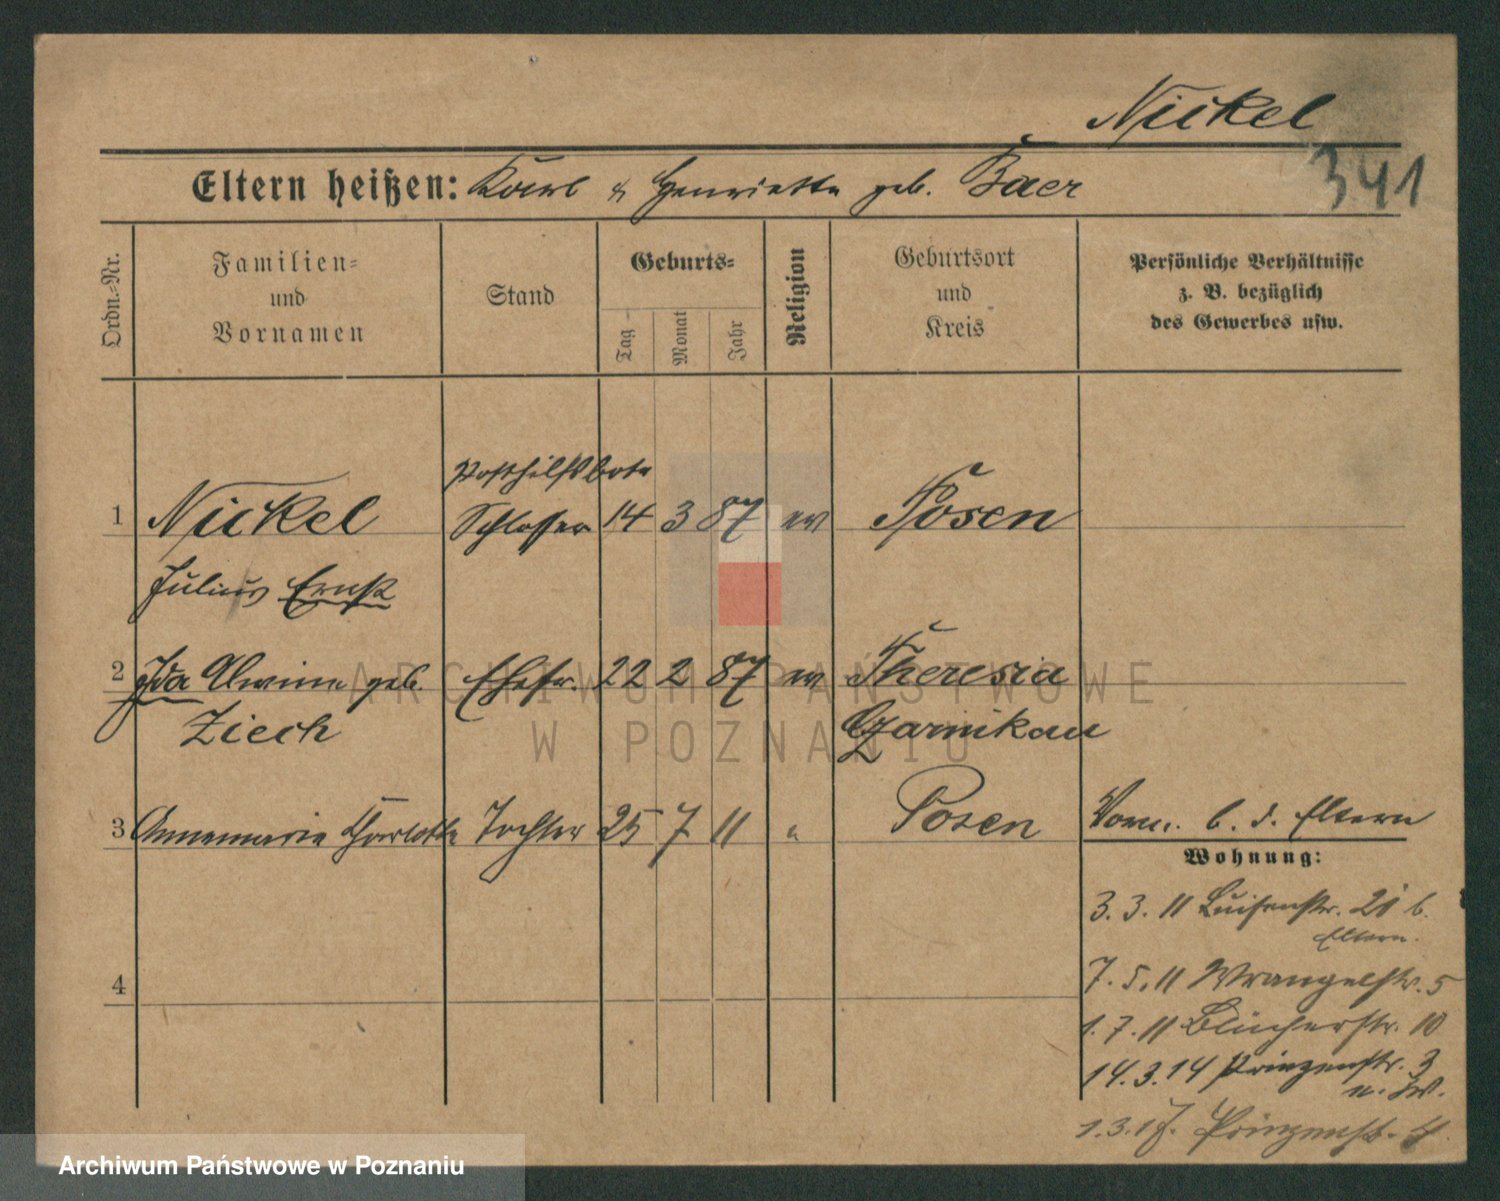 Nickel
341
Eltern heißen: Karl & Henriette geb. Baer
Ordn.-Nr.
Familien-
und
Vornamen
Stand
Geburts-
Tag
Monat
Jahr
Religion
Geburtsort
und
Kreis
Persönliche Verhältnisse
z. B. bezüglich
des Gewerbes usw.
Posthilfsbote
1 Nickel Schlosser 14 3 87 ev Posen
Julius Ernst
2 Ida Alwine geb. Ehefr. 22 2 87 ev Theresia
Ziech Czarnikau
3 Annemarie Charlotte Tochter 25 7 11 " Posen b. d. Eltern
Wohnung:
3. 3. 11 Luisenstr. 21 b.
Eltern.
4
7. 5. 11 Wrangelstr. 5
1. 7. 11 Blücherstr. 10
14. 3. 14 Prinzenstr. 3
n. W.
1. 3. 17. Prinzenstr. 4
ARCHIWUM PAŃSTWOWE
W POZNANIU
Archiwum Państwowe w Poznaniu